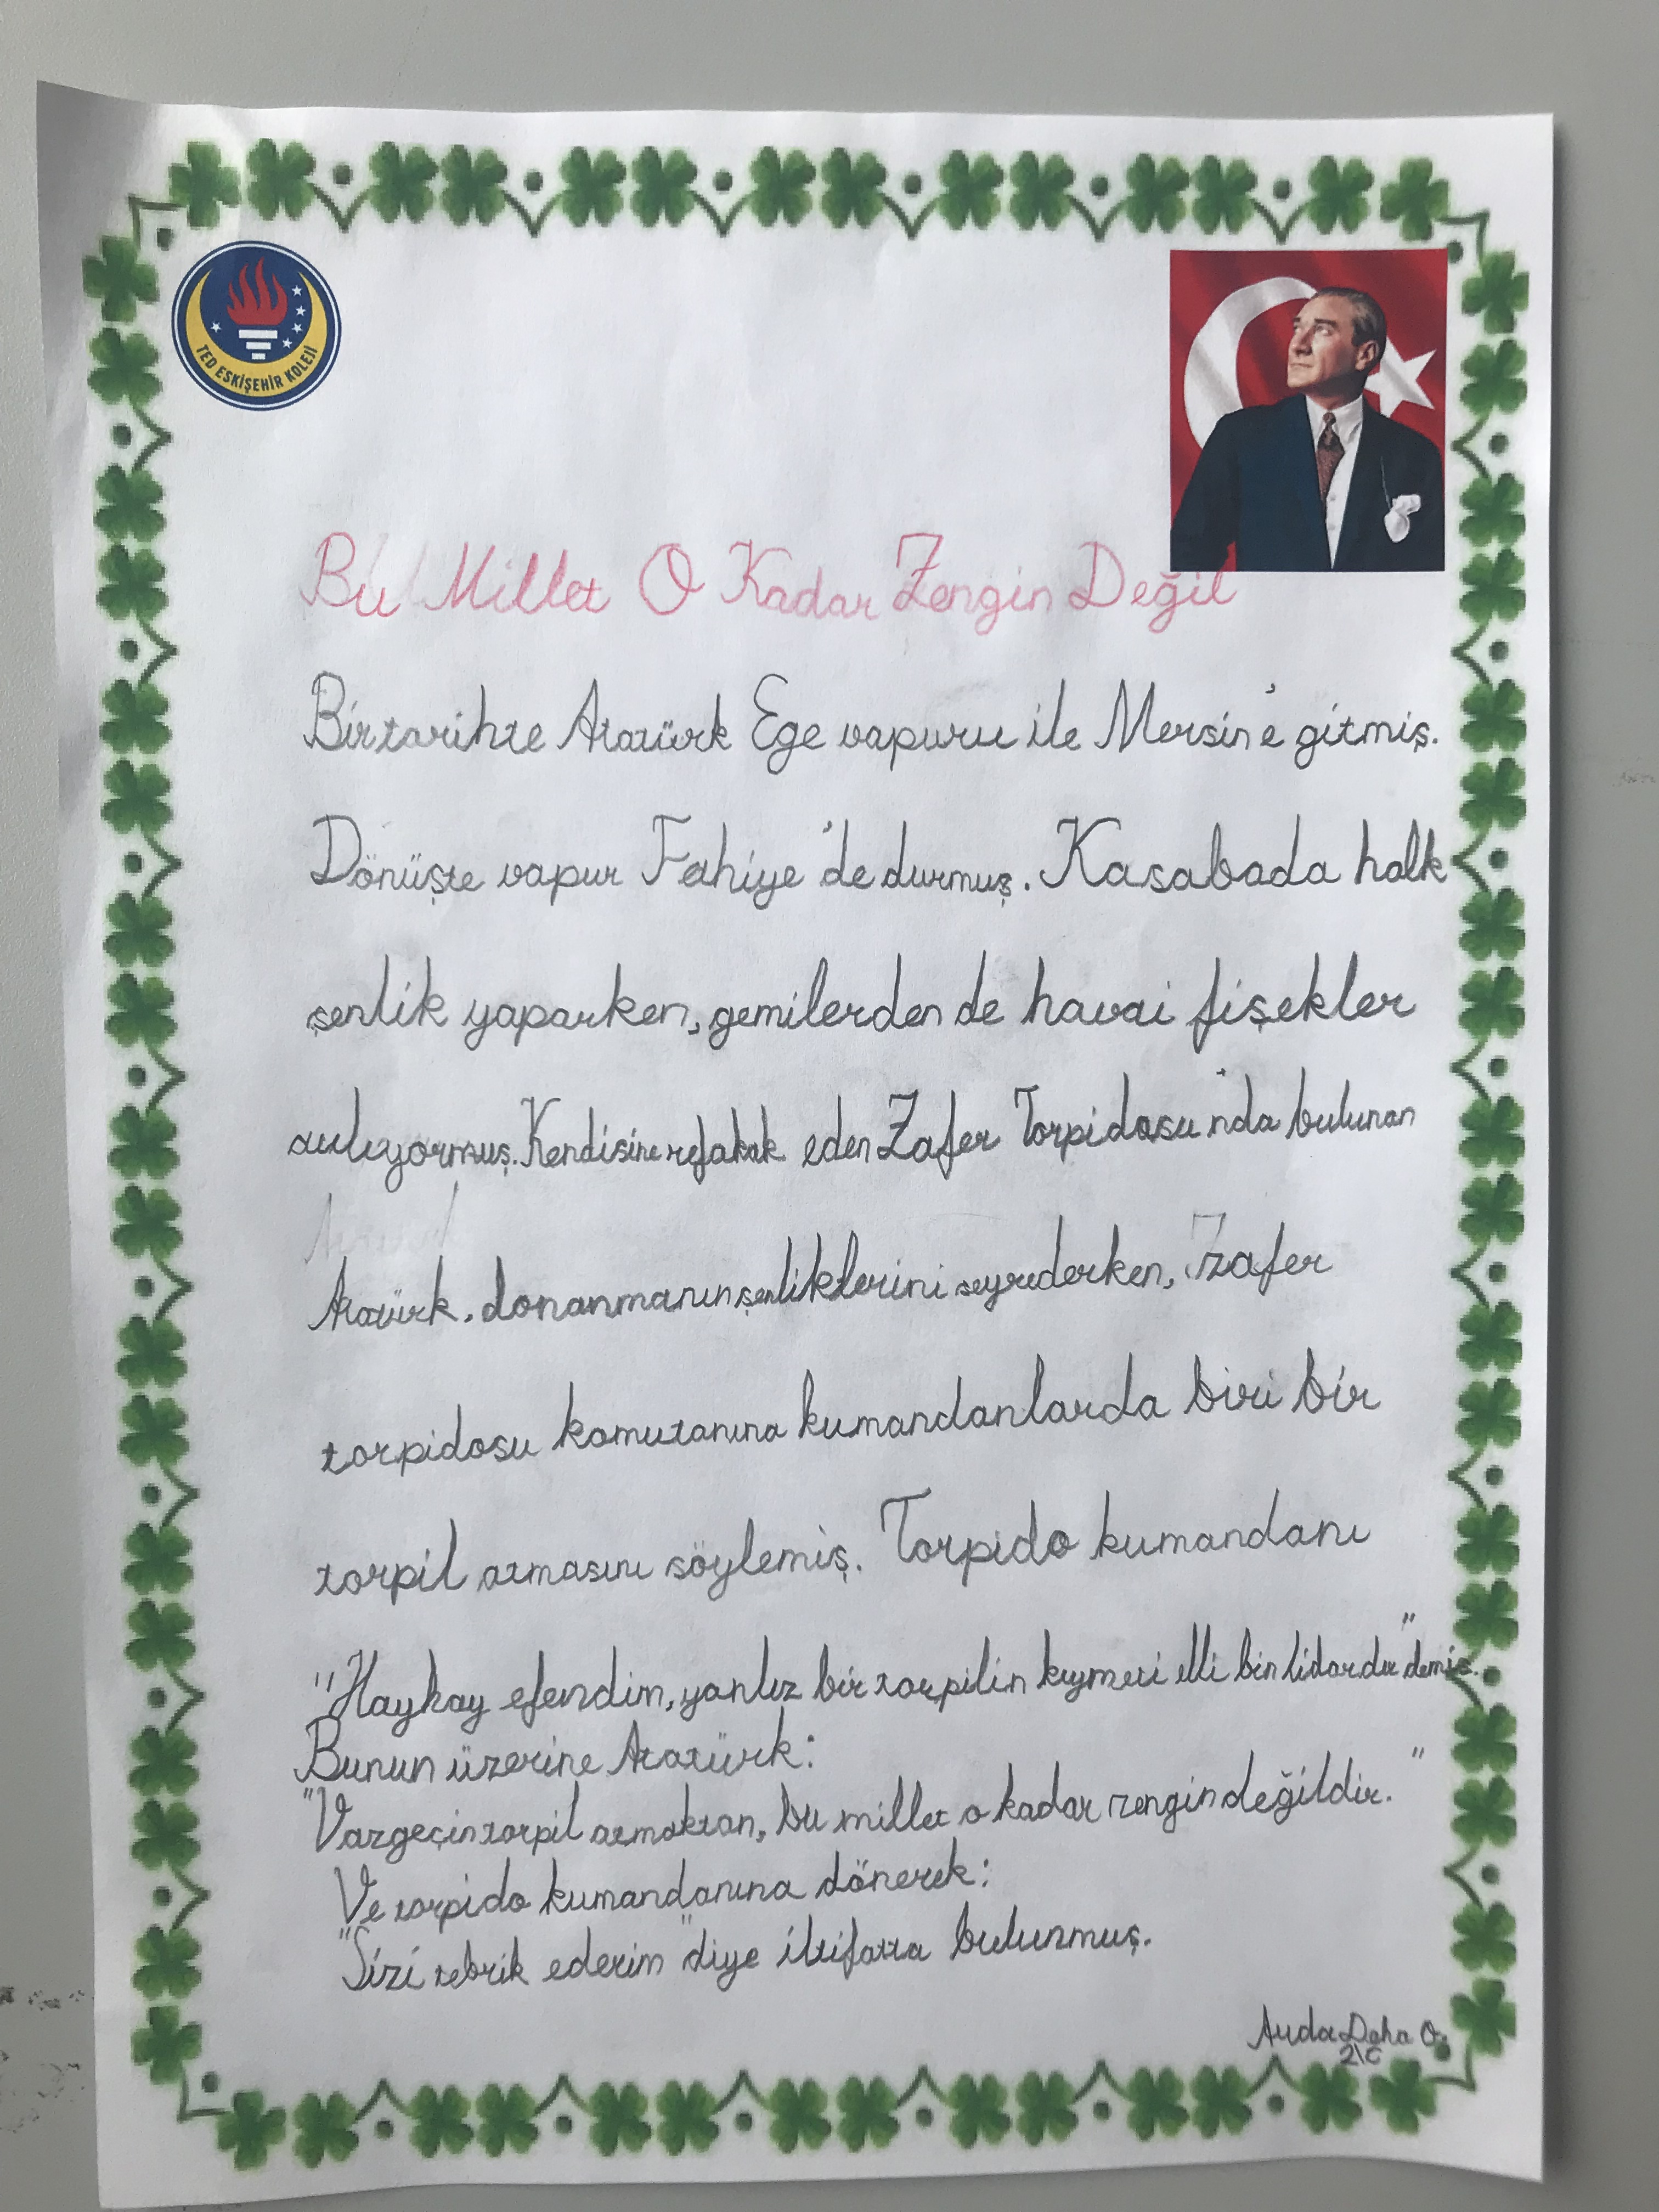 TED ESKİŞEHİR KOLEJİ
Bu Millet O Kadar Zengin Değil
Bir tarihte Atatürk Ege vapuru ile Mersin'e gitmiş.
Dönüşte vapur Fehiye'de durmuş. Kasabada halk
şenlik yaparken, gemilerden de havai fişekler
atılıyormuş. Kendisine refakat eden Zafer Torpidosu'nda bulunan
Atatürk, donanmanın şenliklerini seyrederken, Zafer
torpidosu komutanına kumandanlarda biri bir
torpil atmasını söylemiş. Torpido kumandanı
"Hayhay efendim, yanlız bir torpilin kıymeti elli bin liradır" demiş.
Bunun üzerine Atatürk:
"Vazgeçin torpil atmaktan, bu millet o kadar zengin değildir."
Ve torpido kumandanına dönerek:
"Sizi tebrik ederim" diye iltifatta bulunmuş.
Daha O.
2\C